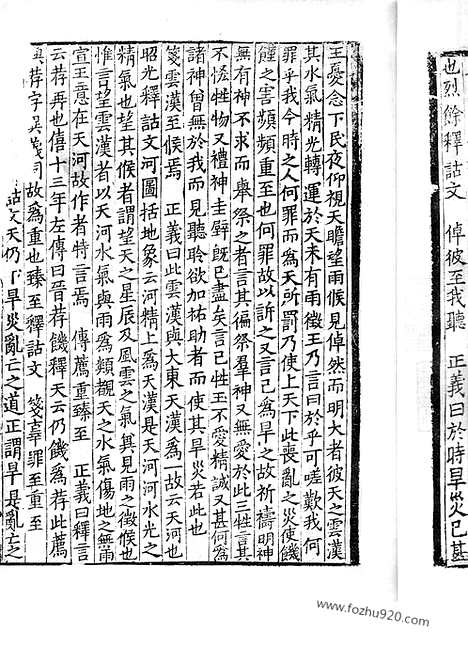 也烈餘釋詁文　倬彼至我聽　正義曰於時旱災已甚
王憂念下民夜仰視天瞻望雨候見倬然而明大者彼天之雲漢
其水氣精光轉運於天未有雨徵王乃言曰於乎可嗟歎我何
罪乎我今時之人何罪而為天所罰乃使上天下此喪亂之災使饑
饉之害頻頻重至也何罪故以訴之又言己為旱之故祈禱明神
無有神不求而舉祭之者言其徧祭羣神又無愛於此三牲言其
不恡牲物又禮神圭璧既已盡矣言己牲玉不愛精誠又甚何為
諸神曾無於我而見聽聆欲加祐助者而使其旱災若此也
箋雲漢至候焉　正義曰此雲漢與大東天漢為一故云天河也
昭光釋詁文河圖括地象云河精上為天漢是天河河水光之
精氣也望其候者謂望天之星辰及風雲之氣其見雨之徵候也
惟言望雲漢者以天河水氣與雨為類觀天之水氣傷地之無雨
宣王意在天河故作者特言焉　傳薦重臻至　正義曰釋言
云荐再也僖十三年左傳曰晉荐饑釋天云仍饑為荐此薦
與荐字異義同故為重也臻至釋詁文　箋辜罪至重至
詁文天仍下旱災亂亡之道正謂旱是亂亡之
www.fozhu920.com